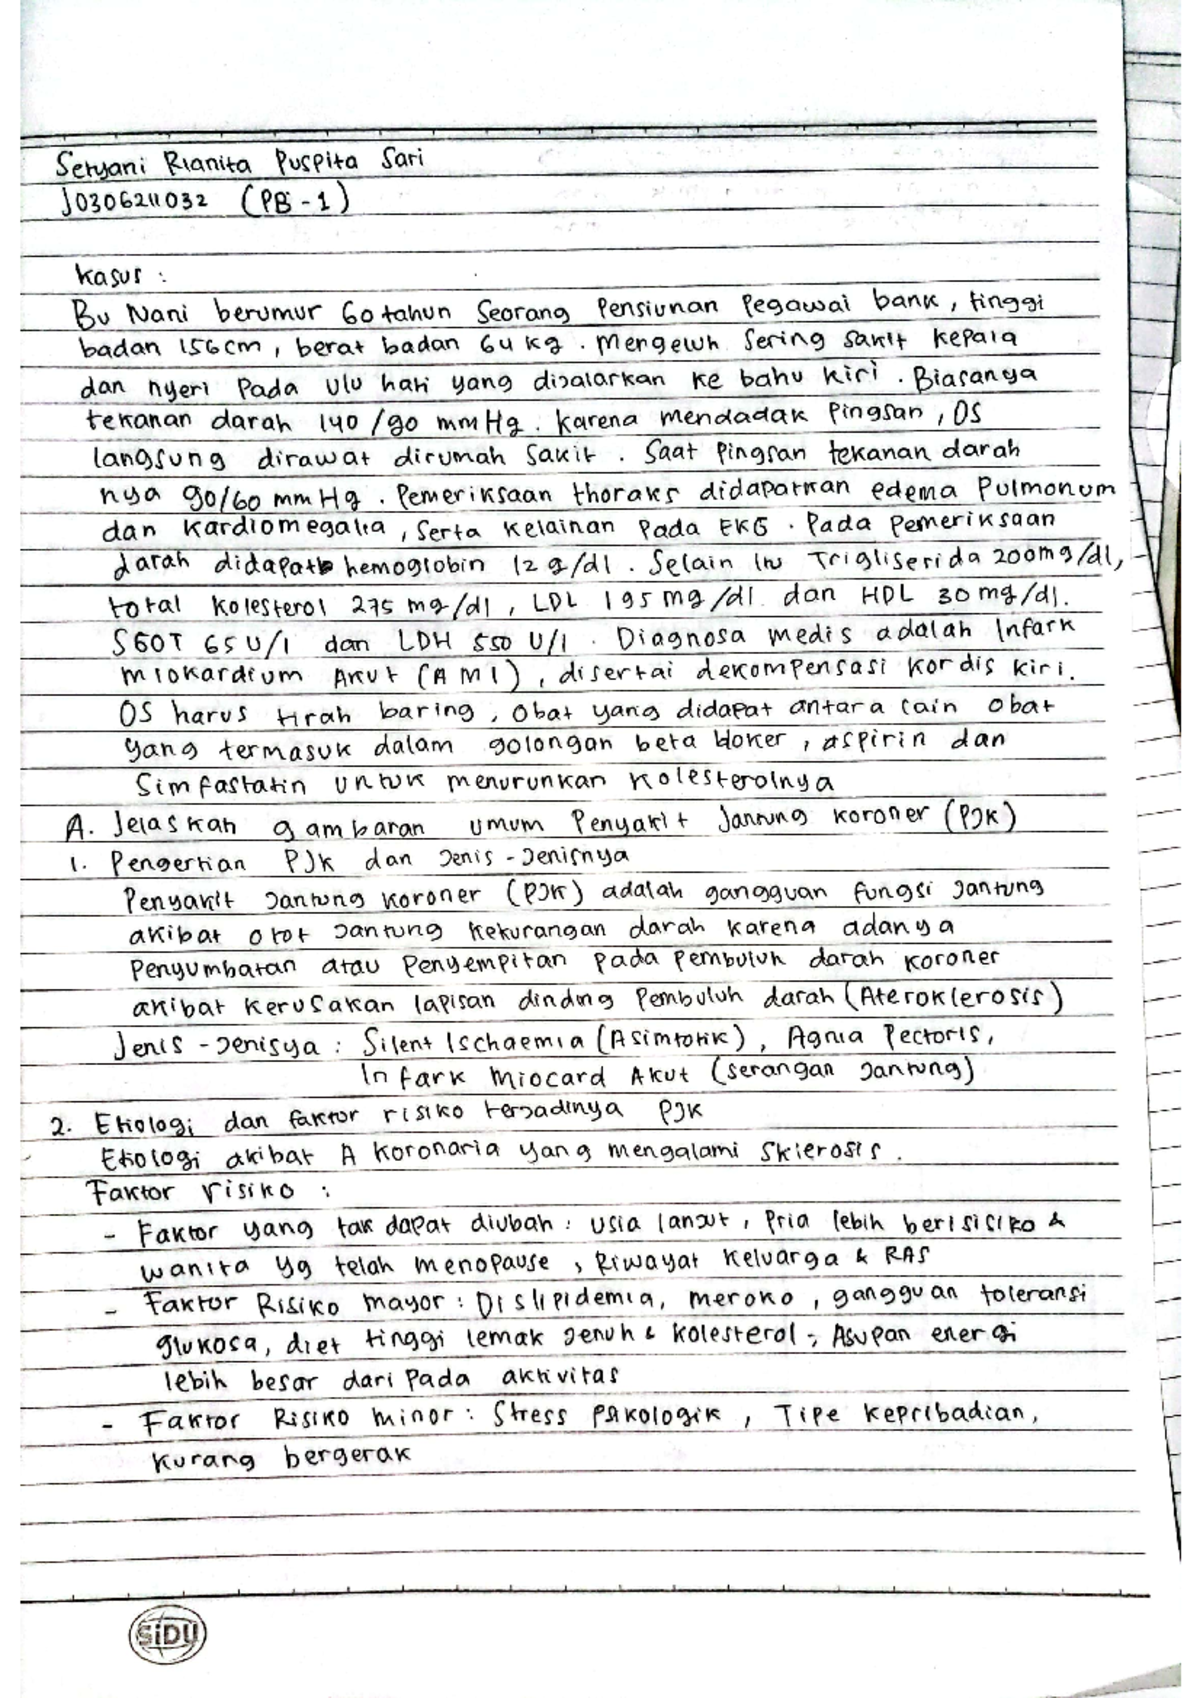 Setyani Rianita Puspita Sari
J0306211032 (PBi-1)
Kasus :
Bu Nani berumur 60 tahun Seorang Pensiunan Pegawai bank, tinggi
badan 156 cm, berat badan 64 kg. Mengeluh Sering sakit kepala
dan nyeri Pada ulu hati yang dijalarkan ke bahu kiri. Biasanya
tekanan darah 140/90 mmHg. Karena mendadak Pingsan, OS
langsung dirawat dirumah Sakit. Saat Pingsan tekanan darah
nya 90/60 mmHg. Pemeriksaan thoraks didapatkan edema Pulmonum
dan Kardiomegalia, Serta Kelainan Pada EKG. Pada Pemeriksaan
darah didapat hemoglobin 12 g/dl. Selain itu Trigliserida 200mg/dl,
total Kolesterol 275 mg/dl, LDL 195 mg/dl dan HDL 30 mg/dl.
SGOT 65 U/l dan LDH 550 U/l. Diagnosa medis adalah Infark
Miokardium Akut (AMI), disertai dekompensasi Kordis Kiri.
OS harus tirah baring, Obat yang didapat antara lain Obat
yang termasuk dalam golongan beta bloker, aspirin dan
Simfastatin untuk menurunkan Kolesterolnya
A. Jelaskan gambaran umum Penyakit Jantung koroner (PJK)
1. Pengertian PJK dan Jenis-Jenisnya
Penyakit Jantung Koroner (PJK) adalah gangguan fungsi Jantung
akibat otot Jantung Kekurangan darah karena adanya
Penyumbatan atau Penyempitan pada pembuluh darah koroner
akibat kerusakan lapisan dinding Pembuluh darah (Ateroklerosis)
Jenis-Jenisya : Silent Ischaemia (Asimtotik), Agnia Pectoris,
Infark Miocard Akut (serangan Jantung)
2. Etiologi dan faktor risiko terjadinya PJK
Etiologi akibat A Koronaria yang mengalami Sklerosis.
Faktor risiko :
- Faktor yang tak dapat diubah : usia lanjut, Pria lebih berisiciko &
wanita yg telah menopause, Riwayat Keluarga & RAS
- Faktor Risiko mayor : Dislipidemia, merokok, gangguan toleransi
glukosa, diet tinggi lemak Jenuh & Kolesterol, Asupan energi
lebih besar dari Pada aktivitas
- Faktor Risiko minor : Stress Psikologik, Tipe kepribadian,
Kurang bergerak
SiDU